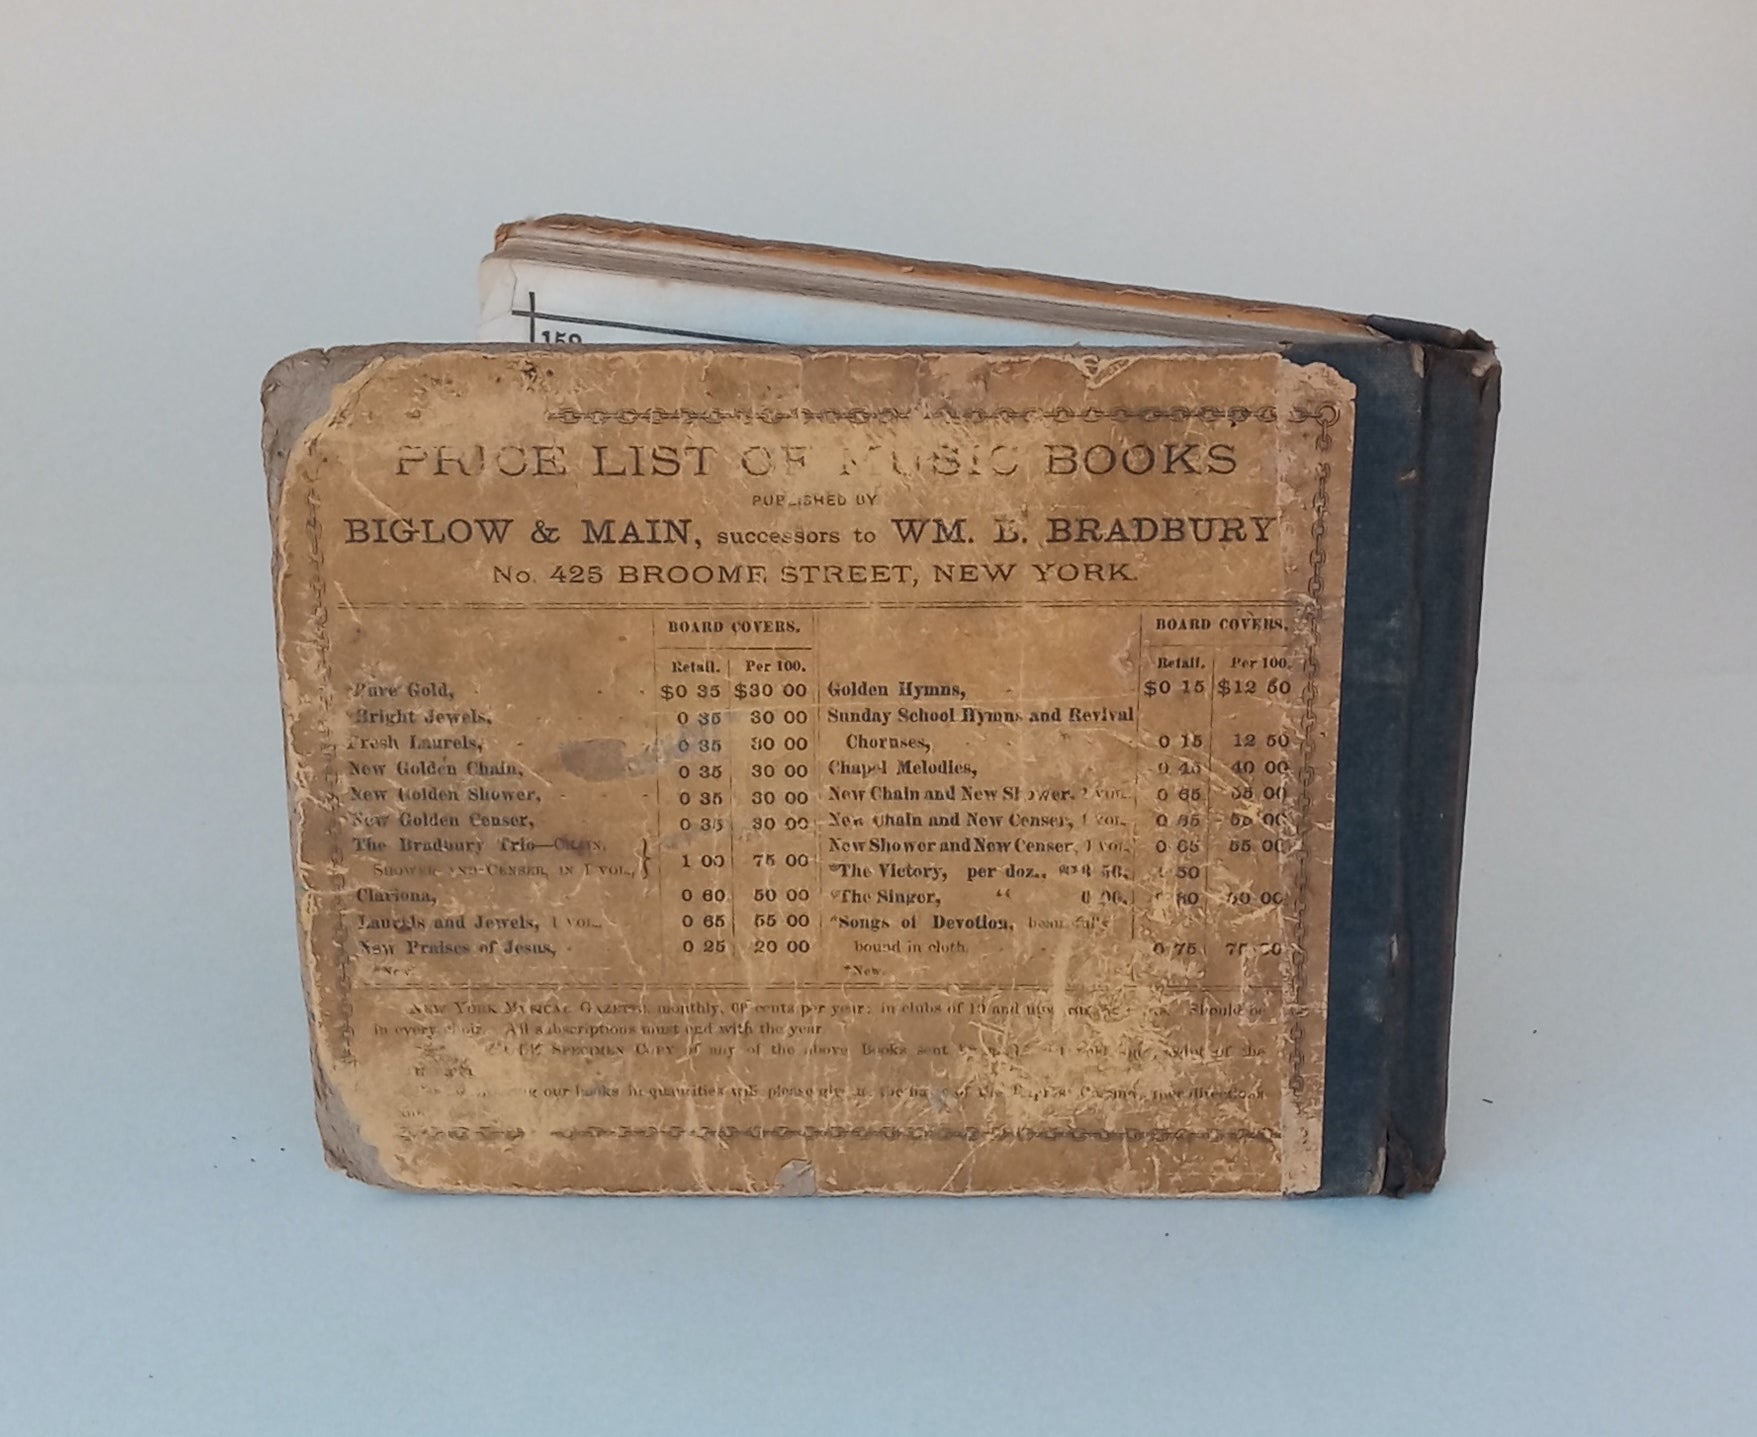 159
PRICE LIST OF MUSIC BOOKS
PUBLISHED BY
BIGLOW & MAIN, successors to WM. B. BRADBURY
No. 425 BROOME STREET, NEW YORK.
BOARD COVERS.
Retail. Per 100.
Pure Gold, $0 35 $30 00
Bright Jewels, 0 35 30 00
Fresh Laurels, 0 35 30 00
New Golden Chain, 0 35 30 00
New Golden Shower, 0 35 30 00
New Golden Censer, 0 35 30 00
The Bradbury Trio—CHAIN,
SHOWER AND CENSER, IN 1 VOL., 1 00 75 00
Clariona, 0 60 50 00
Laurels and Jewels, 1 VOL. 0 65 55 00
New Praises of Jesus, 0 25 20 00
*New
BOARD COVERS.
Retail. Per 100.
Golden Hymns, $0 15 $12 50
Sunday School Hymns and Revival
Choruses, 0 15 12 50
Chapel Melodies, 40 00
New Chain and New Shower, VOL. 0 65 00
New Chain and New Censer, 1 VOL. 0 65 55 00
New Shower and New Censer, 1 VOL. 0 65 55 00
*The Victory, per doz., 50
*The Singer, “ 60
*Songs of Devotion,
bound in cloth. 0 75
*New.
NEW YORK MUSICAL GAZETTE, monthly, cents per year; in clubs of 10 and Should be
in every All subscriptions must end with the year
SPECIMEN COPY of any of the above Books sent of the
our books in quantities will please give the of the Express